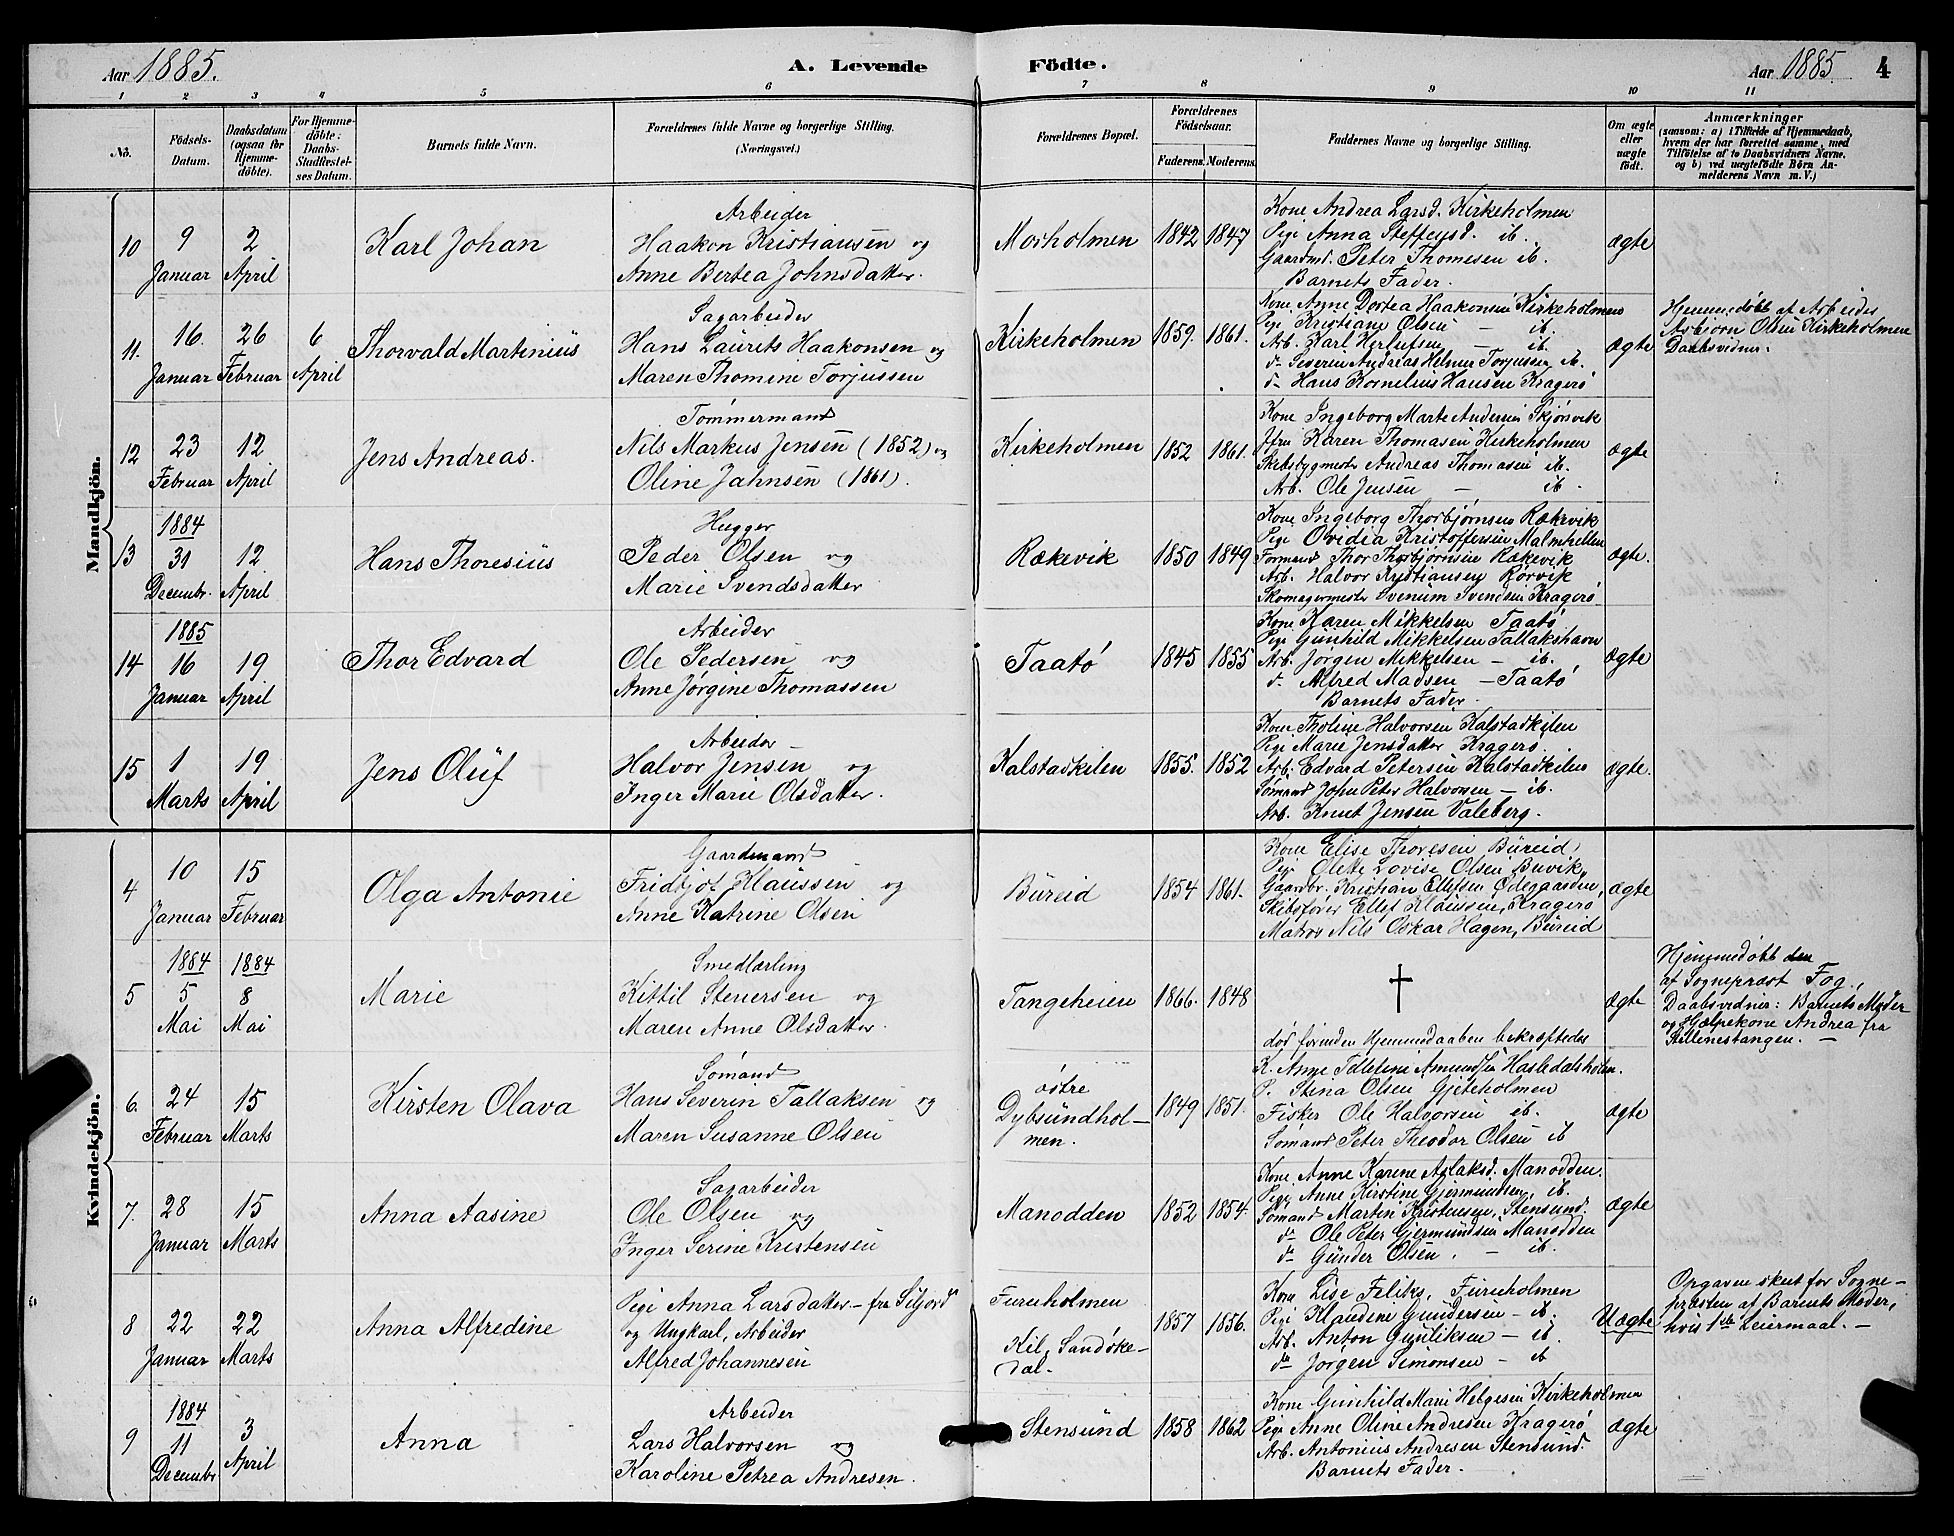 Aar 1885.
A. Levende Födte.
Aar 1885. 4
1 2 3 4 5 6 7 8 9 10 11
No.
Födsels-Datum.
Daabsdatum (ogsaa for Hjemme-döbte).
For Hjemme-döbte: Daabs-Stadfæstel-ses Datum.
Barnets fulde Navn.
Forældrenes fulde Navne og borgerlige Stilling.
(Næringsvei.)
Forældrenes Bopæl.
Forældrenes Födselsaar.
Faderens. Moderens.
Faddernes Navne og borgerlige Stilling.
Om ægte eller uægte födt.
Anmærkninger
(saasom: a) i Tilfælde af Hjemmedaab, hvem der har forrettet samme, med Tilföielse af to Daabsvidners Navne, og b) ved uægtefödte Börn An-melderens Navn m. V.)
Mandkjön.
10
9 Januar
2 April
Karl Johan
Arbeider
Haakon Kristiansen og
Anne Bertea Johnsdatter.
Morholmen
1842 1847
Kone Andrea Larsd. Kirkeholmen
Pige Anna Steffensd. ib.
Gaardmd. Peter Thomesen ib.
Barnets Fader.
ægte
11.
16. Januar
26 Februar
6 April
Thorvald Martinius
Sagarbeider
Hans Laurits Haakonsen og
Maren Thomine Torjussen
Kirkeholmen
1859. 1861.
Kone Anne Dortea Haakonsen Kirkeholmen
Pige Kristiane Olsen — ib.
Arb. Karl Herlufsen — ib.
d— Severin Andreas Helmer Torjussen ib.
d— Hans Kornelius Hansen Kragerö
ægte
Hjemmedöbt af Arbeider
Asbjörn Olsen Kirkeholmen
Daabsvidner.
12
23 Februar
12 April
Jens Andreas.
Tömmermand
Nils Markus Jensen (1852) og
Oline Jahnsen (1861).
Kirkeholmen
1852 1861.
Kone Ingeborg Marte Andersen Skjörsvik
Jfru Karen Thomasen Kirkeholmen
Skibsbygmester Andreas Thomasen ib.
Arb. Ole Jensen — ib.
ægte
13
1884
31 Decembr.
12 April
Hans Thoresius
Hugger
Peder Olsen og
Marie Svendsdatter
Rækevik
1850 1849
Kone Ingeborg Thorbjörnsen Rækevik
Pige Ovidia Kristoffersen Malmhellen
Formand Thor Thorbjörnsen Rækevik
Arb. Halvor Kristiansen Rörvik
Skomagermester Svenum Svendsen Kragerö
ægte.
14
1885
16 Januar
19 April
Thor Edvard
Arbeider
Ole Pedersen og
Anne Jörgine Thomassen
Taatö
1845 1855
Kone Karen Mikkelsen Taatö
Pige Gunhild Mikkelsen Tallakshavn
Arb. Jörgen Mikkelsen — ib.
d. Alfred Madsen — Taatö
Barnets Fader.
ægte
15
1 Marts
19 April
Jens Oluf
Arbeider —
Halvor Jensen og
Inger Marie Olsdatter.
Kalstadkilen
1855. 1852
Kone Tholine Halvorsen Kalstadkilen
Pige Marie Jensdatter Kragerö.
Arb. Edvard Petersen Kalstadkilen
Sömand John Peter Halvorsen — ib.
Arb. Knut Jensen Valeberg.
ægte.
Kvindekjön.
4
10 Januar
15 Februar
Olga Antonie
Gaardmand
Fridtjof Klaussen og
Anne Katrine Olsen
Büreid
1854 1861.
Kone Elise Thoresen Büreid,
Pige Olette Lovise Olsen, Buvik,
Gaardbr. Kristian Ellefsen Ödegaarden,
Skibsförer Ellef Klaussen, Kragerö
Matros Nils Oskar Hagen, Büreid
ægte
5
1884
5 Mai
1884
8 Mai
Marie
Smedlærling
Kittil Stenersen og
Maren Anne Olsdatter.
Tangeheien
1866. 1848
död forinden Hjemmedaaben bekræftedes
ægte
Hjemmedöbt den
af Sognepræst Fog.,
Daabsvidner: Barnets Moder
og Hjælpekone Andrea fra
Stillenestangen. —
6.
24 Februar
15 Marts
Kirsten Olava
Sömand
Hans Severin Tallaksen og
Maren Susanne Olsen
östre
Dybsundhol-
men.
1849 1851.
K. Anne Tellefine Amundsen Hasledalsholm.
P. Stina Olsen Gjeteholmen
Fisker Ole Halvorsen ib.
Sömand Peter Theodor Olsen ib
ægte
7.
28 Januar
15 Marts
Anna Aasine
Sagarbeider
Ole Olsen og
Inger Serine Kristensen
Manodden
1852 1854.
Kone Anne Karene Aslaksd. Manodden.
Pige Anne Kirstine Gjermundsen, ib.
Sömand Martin Kristensen, Stensund.
d— Ole Peter Gjermundsen Manodden
d— Gunder Olsen. — ib.
ægte
8
22 Januar
22 Marts
Anna Alfredine
Pige Anna Larsdatter — fra Siljord
og Ungkarl, Arbeider
Alfred Johannesen
Furuholmen
Kil, Sandöke-
dal.
1857 1856.
Kone Lise Feliks, Furuholmen
Pige Klaudine Gundersen — ib.
Arb. Anton Gunliksen — ib.
do Jörgen Simonsen — ib
Uægte
Opgaven skeet for Sogne-
præsten af Barnets Moder,
hvis 1ste Leiermaal. —
9
1884
11 Decembr
3 April
Anna
Arbeider
Lars Halvorsen og
Karoline Petrea Andresen.
Stensund
1858 1862
Kone Gunhild Marie Helgesen Kirkeholmen
Pige Anne Oline Andresen Kragerö
Arb. Antonius Andresen Stensund.
Barnets Fader.
ægte